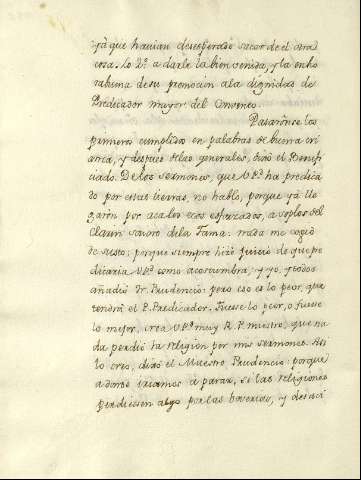 yà que havian desesperado sacar de el otra
cosa. Lo 2º. a darle la bien venida, y la enho
rabuena de su promocion a la dignidad de
Predicador mayor del Convento.
Pasaronse los
primeros cumplidos en palabras de buena cri
anza, y despues de las generales, dixo el Benefi
ciado. De los sermones, que V.P. ha predica
do por estas tierras, no hablo, porque yà lle
garon por aca los ecos esforzados, a soplos del
Clarin sonoro de la Fama. nada me cogiò
de susto; porque siempre hice juicio de que pre
dicaria V.P. como acostumbra; y yo, y todos
añadiò Fr. Prudencio: pero eso es lo peor, que
tendrà el P. Predicador. Fuese lo peor, o fuese
lo mejor, crea V.P. muy R. P. mustro, que na
da perdiò la religion por mis sermones. Asi
lo creo, dixo el Maestro Prudencio: porque
a donde iriamos à parar, si las religiones
perdiesen algo por las boverias, y desaci